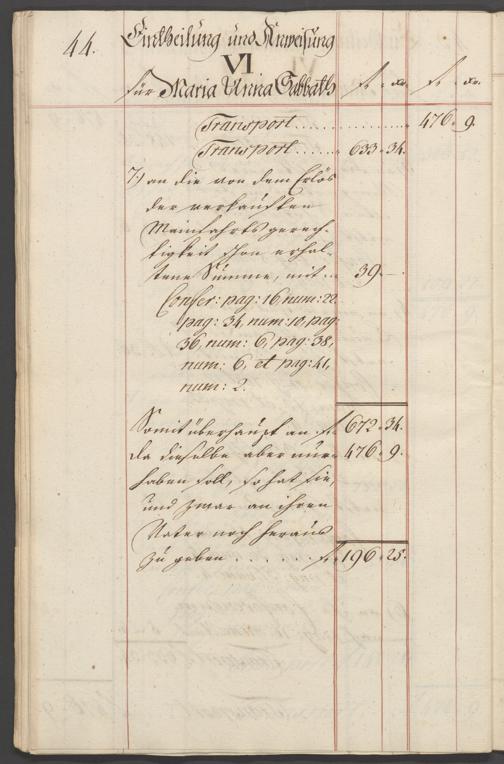 44.
Eintheilung und Anweisung
VI
für Maria Anna Sabbath fr. xr. fr. xr.
Transport . . . . . . . . . . 476. 9.
Transport . . . . . 633. 34.
7.) an die von dem Erlös
der verkauften
Mainfahrtsgerech-
tigkeit schon erhal-
tene Summe, mit . . 39. —
Confer: pag: 16, num: 22
pag: 34, num: 10, pag:
36, num: 6, pag: 38,
num: 6, et pag: 41,
num: 2.
Somit überhaupt an fr. 672. 34.
da dieselbe aber nur 476. 9.
haben soll, so hat sie,
und zwar an ihren
Vater noch heraus
zu geben . . . . . . fr. 196. 25.